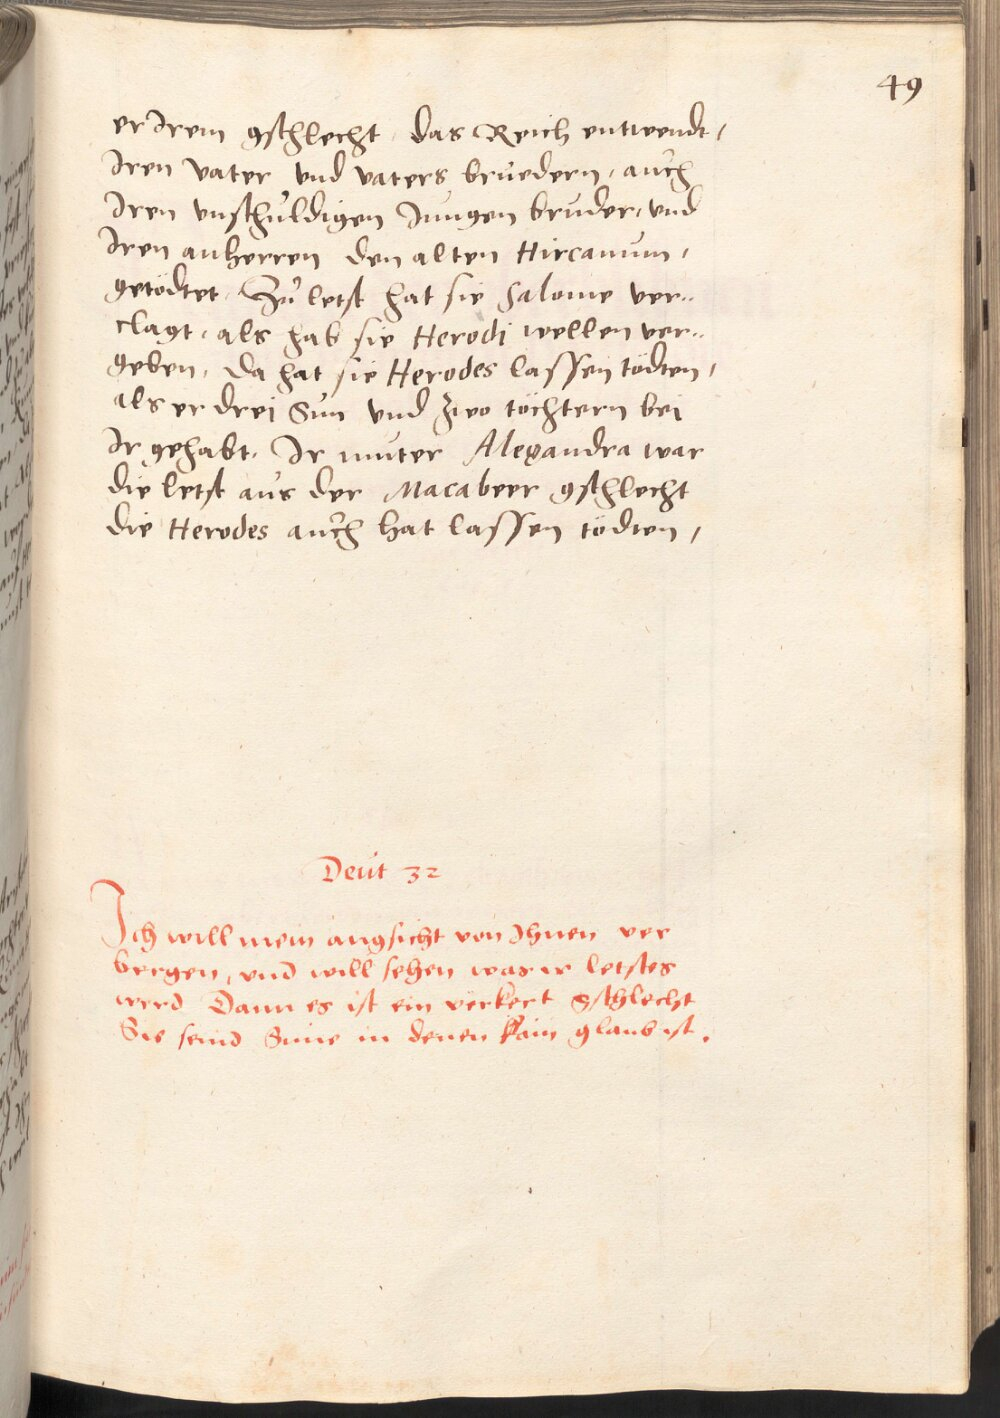 49
er Irem gschlecht, das Reich entwendt,
Iren vater vnd vaters bruedern, auch
Iren vnschuldigen Jungen bruder, vnd
Iren anherren den alten Hircanum,
getödtet. Zu letst hat sie Salome ver..
clagt, als hab sie Herodi wellen ver..
geben, da hat sie Herodes lassen tödten,
als er drei Sun vnd zwo töchtern bei
Ir gehabt. Ir muter Alexandra war
die letst aus der Macabeer gschlecht
die Herodes auch hat lassen tödten,
Deut 32
Ich will mein angsicht von Ihnen ver
bergen, vnd will sehen was ir letstes
werd Dann es ist ein verkert gschlecht
Sie seind Süne in denen kain glaub ist.